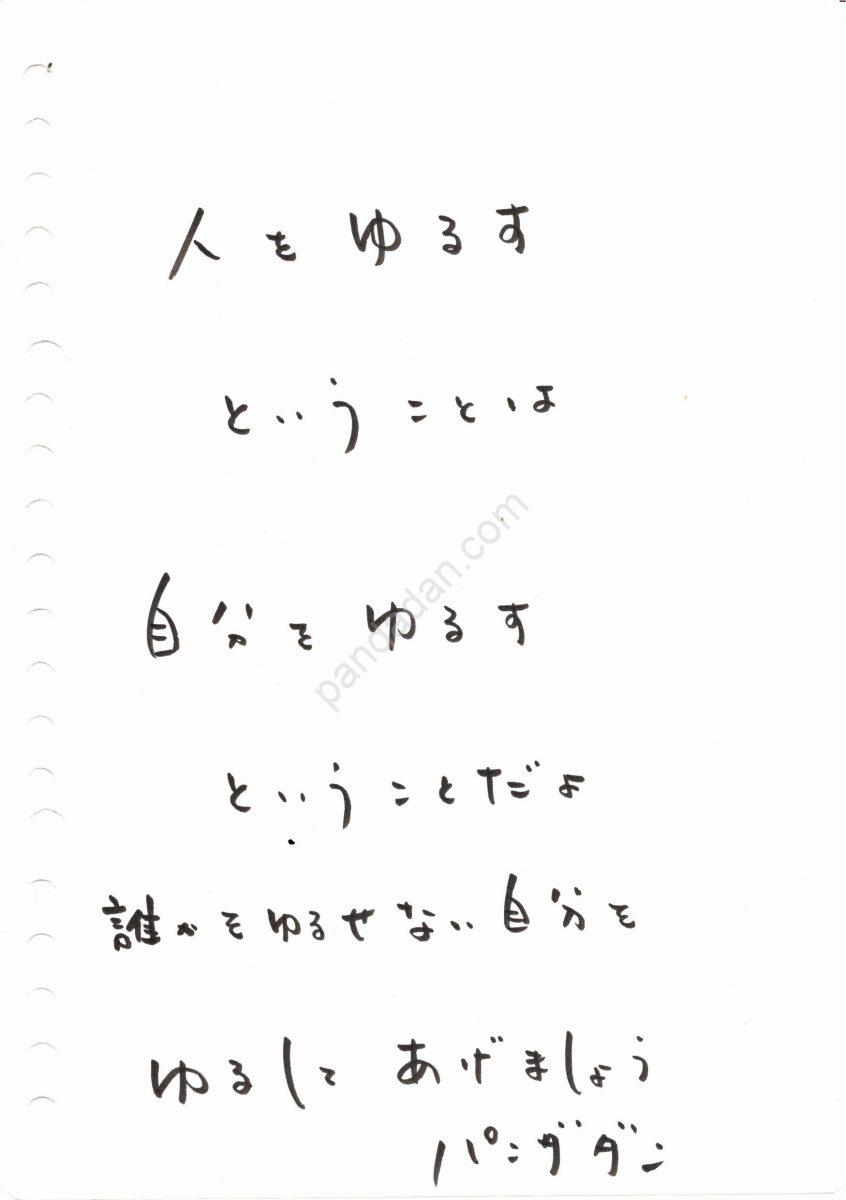 人をゆるす
ということは
自分をゆるす
ということだよ
誰かをゆるせない自分を
ゆるしてあげましょう
パンダダン
pandadan.com